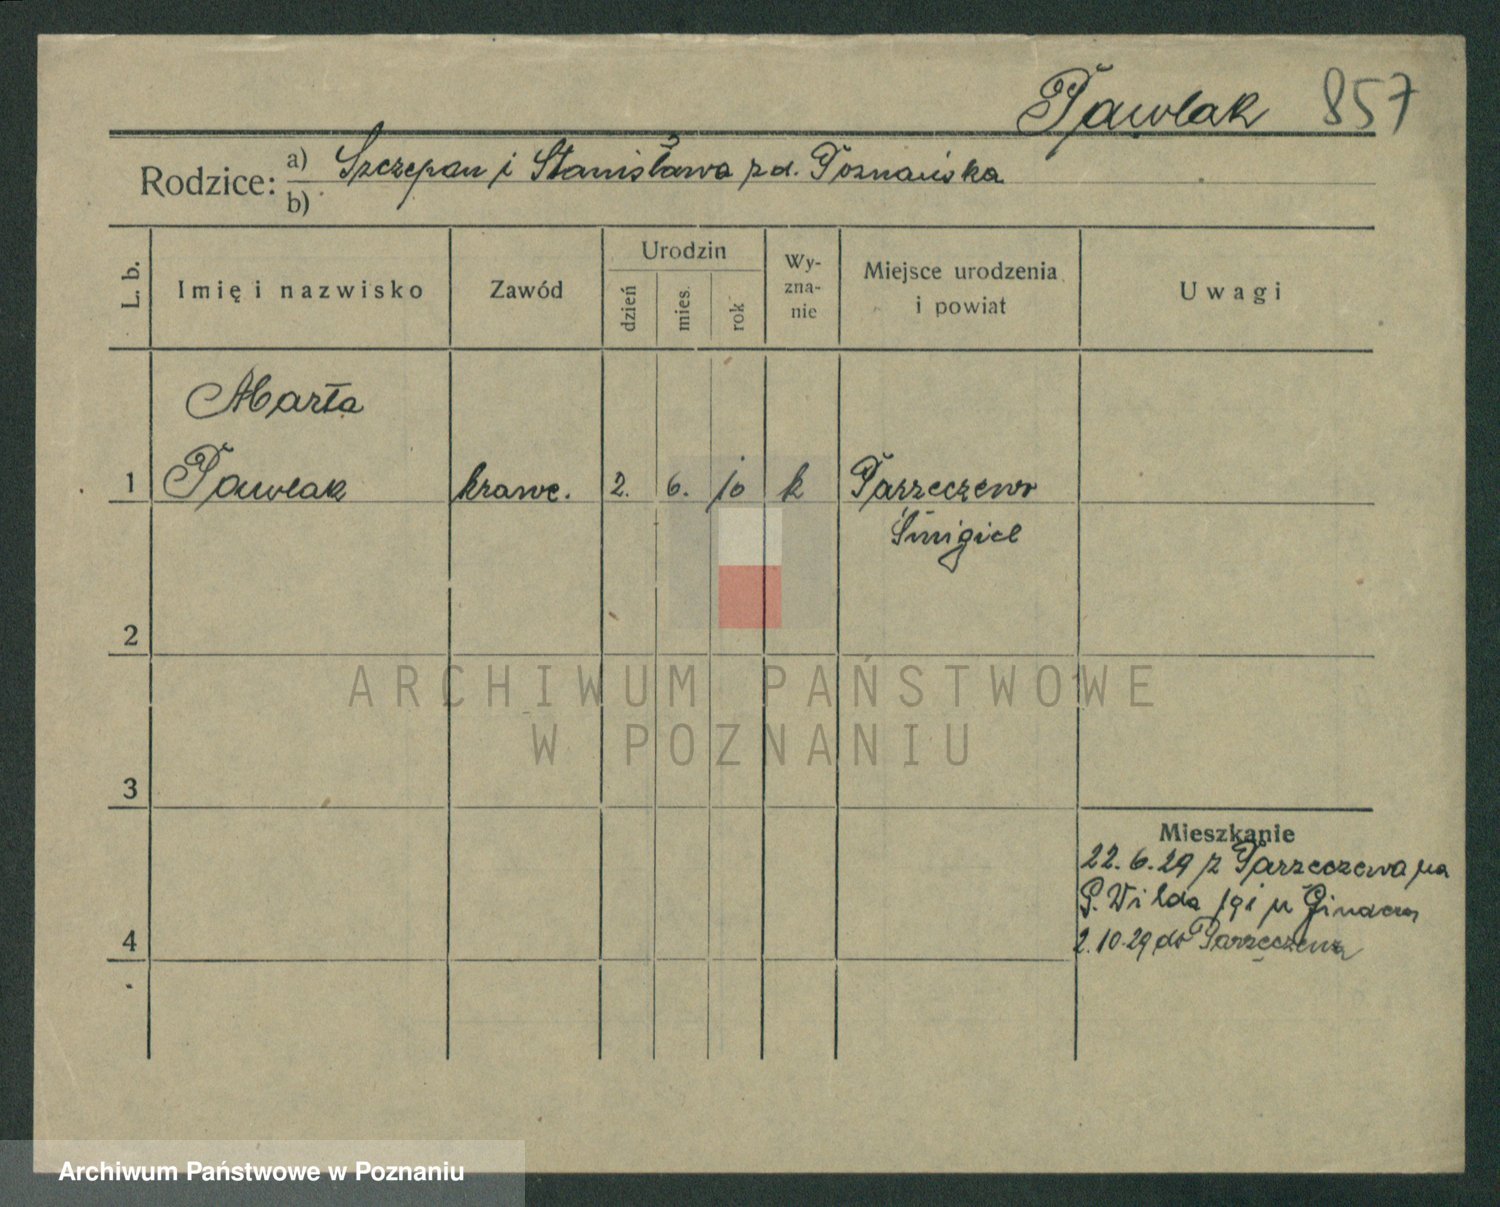 Pawlak 857
Rodzice: a) Szczepan i Stanisława zd. Poznańska
b)
L. b.
Imię i nazwisko
Zawód
Urodzin
dzień
mies.
rok
Wy-
zna-
nie
Miejsce urodzenia
i powiat
Uwagi
Marta
1 Pawlak krawc. 2. 6. 10 k Parzeczewo
Śmigiel
2
3
4
Mieszkanie
22.6.29 z Parzeczewa na
G. Wilda 19i u
2.10.29 do Parzęczewa
ARCHIWUM PAŃSTWOWE
W POZNANIU
Archiwum Państwowe w Poznaniu